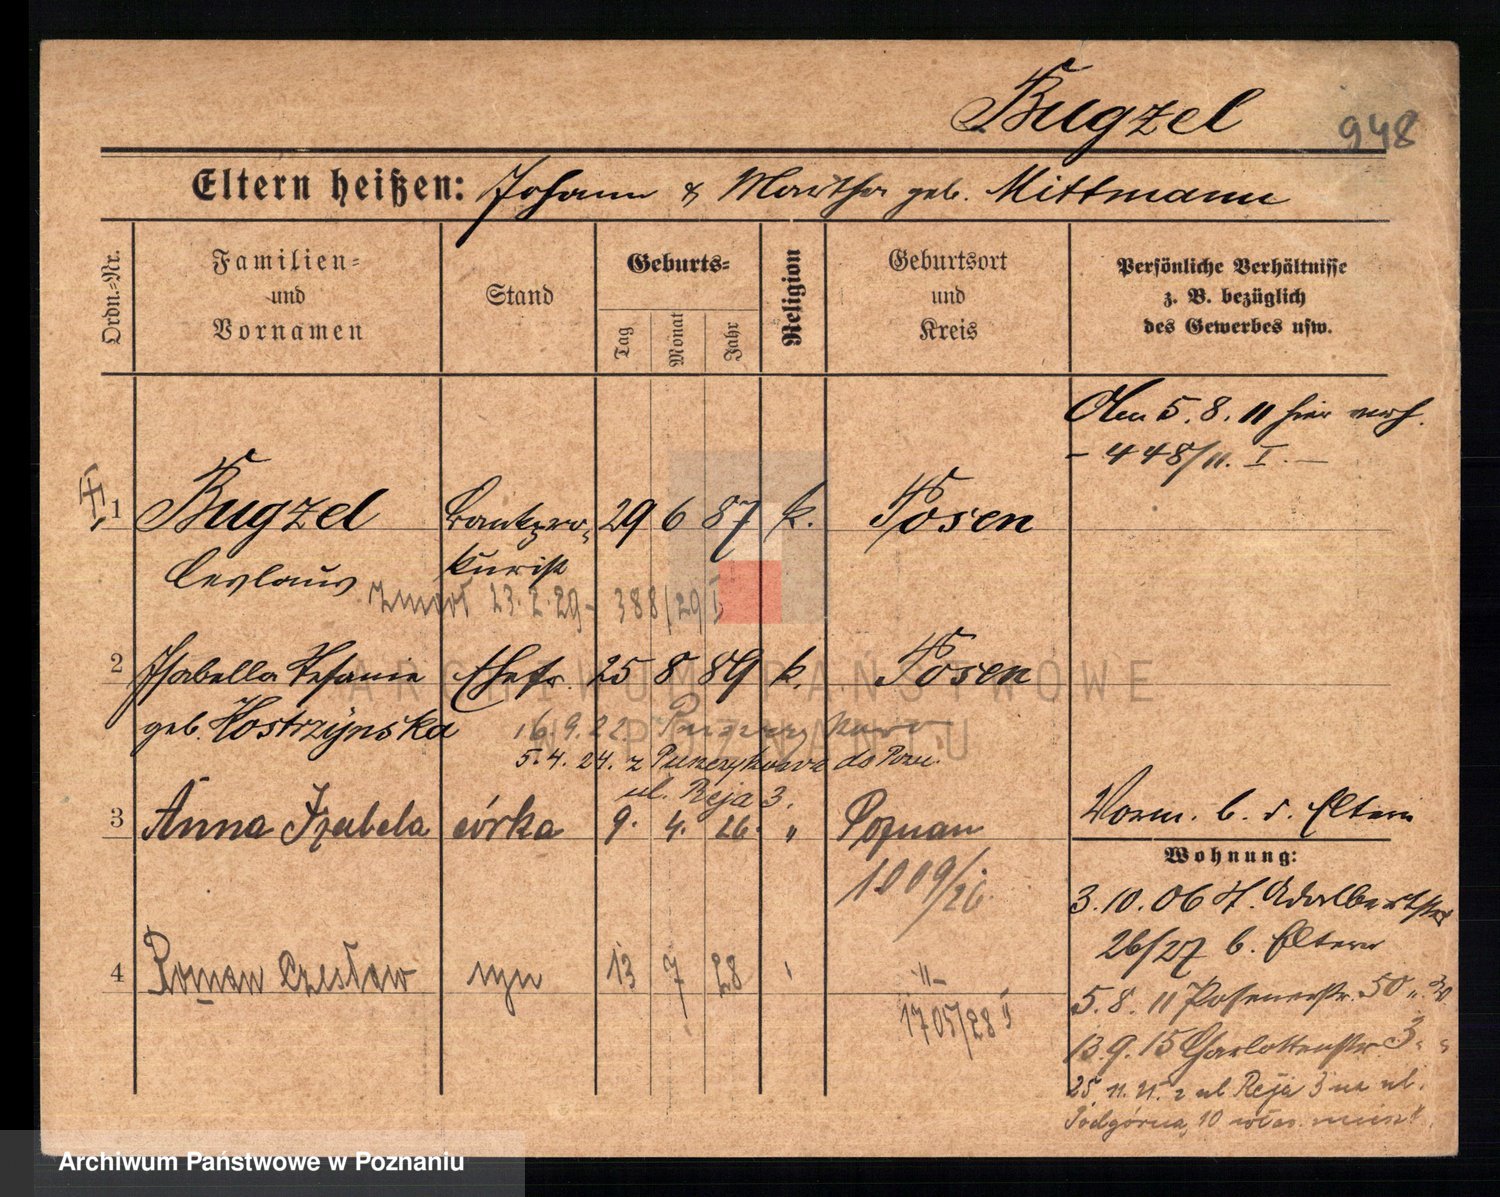 Bugzel
948
Eltern heißen: Johann & Martha geb. Mittmann
Ordn.=Nr.
Familien=
und
Vornamen
Stand
Geburts=
Tag
Monat
Jahr
Religion
Geburtsort
und
Kreis
Persönliche Verhältnisse
z. B. bezüglich
des Gewerbes usw.
Am 5. 8. 11 hier verh.
– 448/11. I. –
1 Bugzel Bankpro= 29 6 87 k. Posen
Ceslaus kurist
zmarł 23. 2. 29 – 388/29 I
2 Isabella Stefanie Ehefr. 25 8 89 k. Posen
geb. Kostrzynska
16. 9. 22
5. 4. 24. z do Pozn.
ul. Reja 3.
3 Anna Izabela córka 9. 4. 26. " Poznan
1009/26
Vorm. b. d. Eltern
Wohnung:
3. 10. 06 Adalbertstr
26/27 b. Eltern
4 Roman Czesław syn 13 7 28 -"-
1705/28 I
5. 8. 11 Posenerstr. 50
13. 9. 15 Charlottenstr. 3
25 z ul Reja 3 na ul.
Podgórna 10
ARCHIWUM PAŃSTWOWE
W POZNANIU
Archiwum Państwowe w Poznaniu